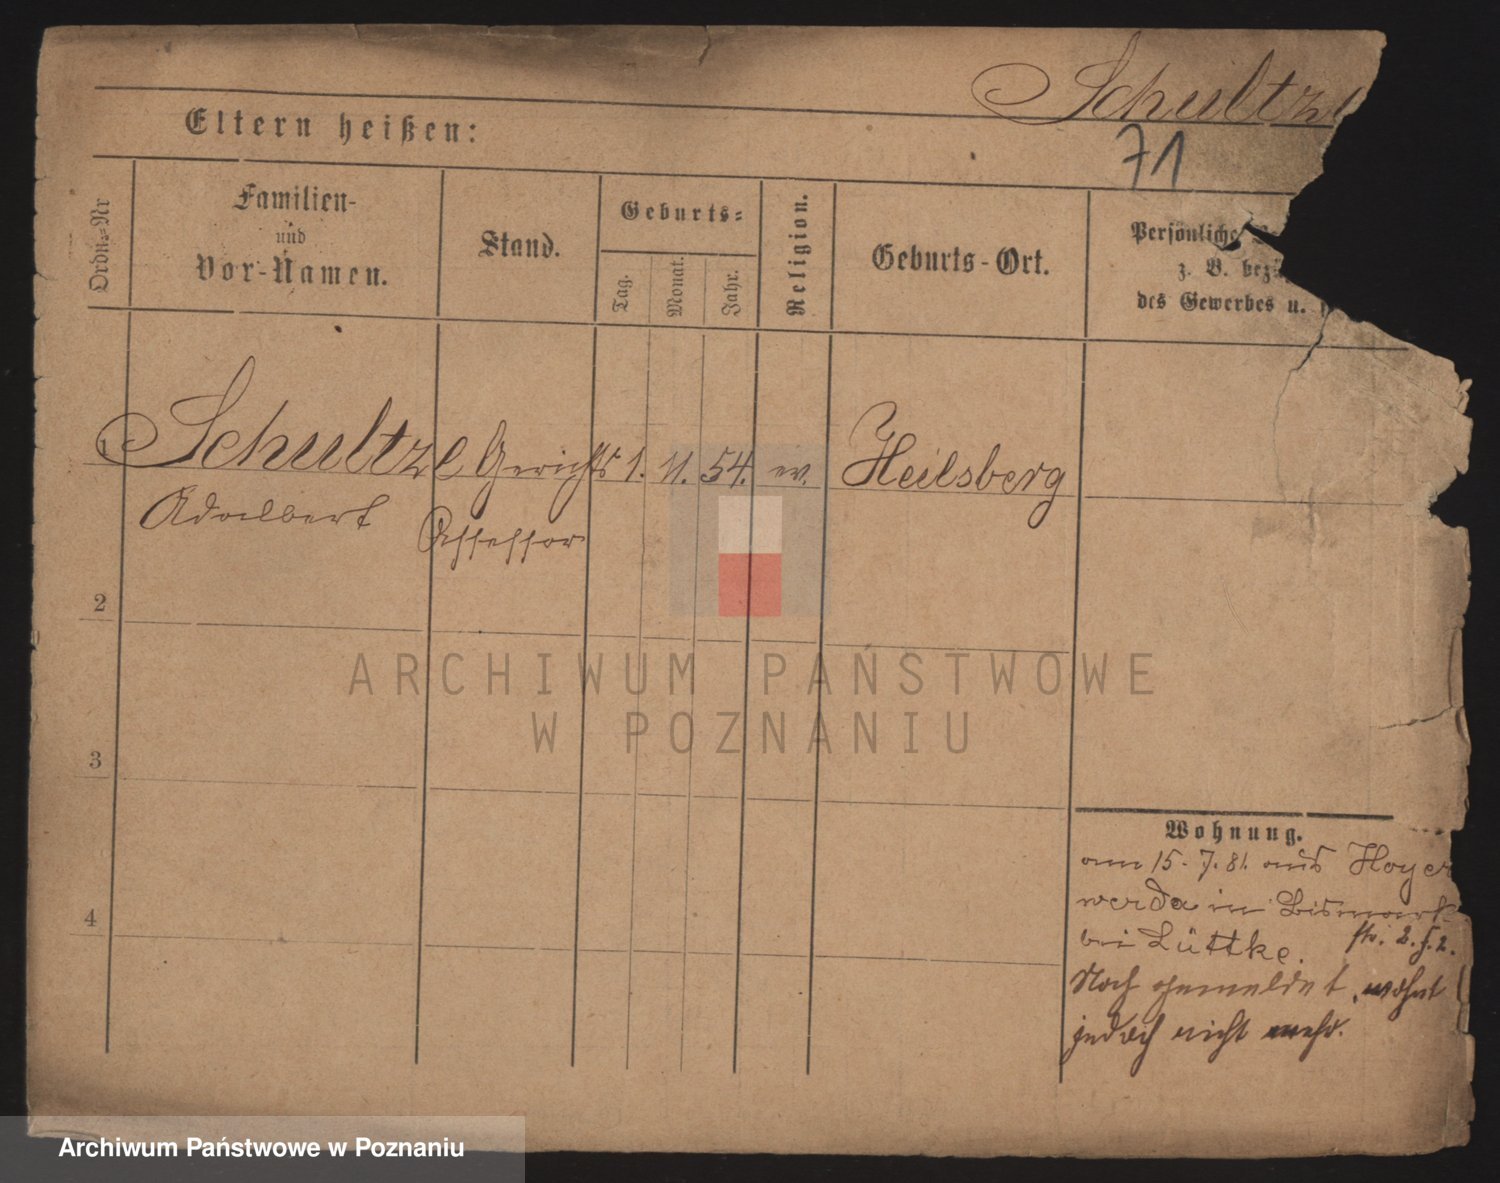 Schultze
71
Eltern heißen:
Ordn.=Nr
Familien-
und
Vor-Namen.
Stand.
Geburts=
Tag.
Monat.
Jahr.
Religion.
Geburts-Ort.
Persönliche
z. B. bezü
des Gewerbes u.
1 Schultze Gerichts 1. 11. 54. ev. Heilsberg
Adalbert Assessor
2
3
4
Wohnung.
am 15. 7. 81. aus Hoyer
werda in Bismark
str. 2. h. 2.
bei Lüttke.
Noch gemeldet, wohnt
jedoch nicht mehr.
ARCHIWUM PAŃSTWOWE
W POZNANIU
Archiwum Państwowe w Poznaniu